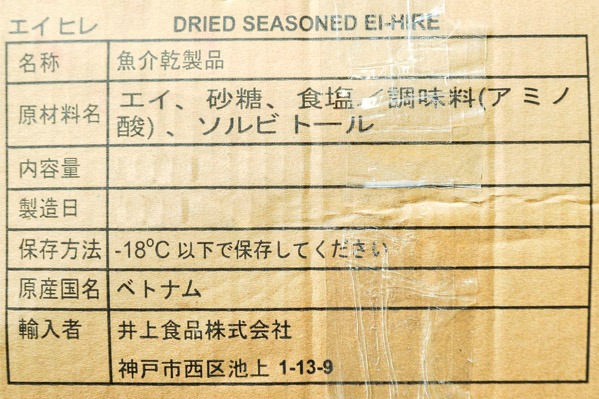 エイヒレ DRIED SEASONED EI-HIRE
名称 魚介乾製品
原材料名 エイ、砂糖、食塩／調味料(アミノ
酸) 、ソルビトール
内容量
製造日
保存方法 -18°C 以下で保存してください
原産国名 ベトナム
輸入者 井上食品株式会社
神戸市西区池上 1-13-9